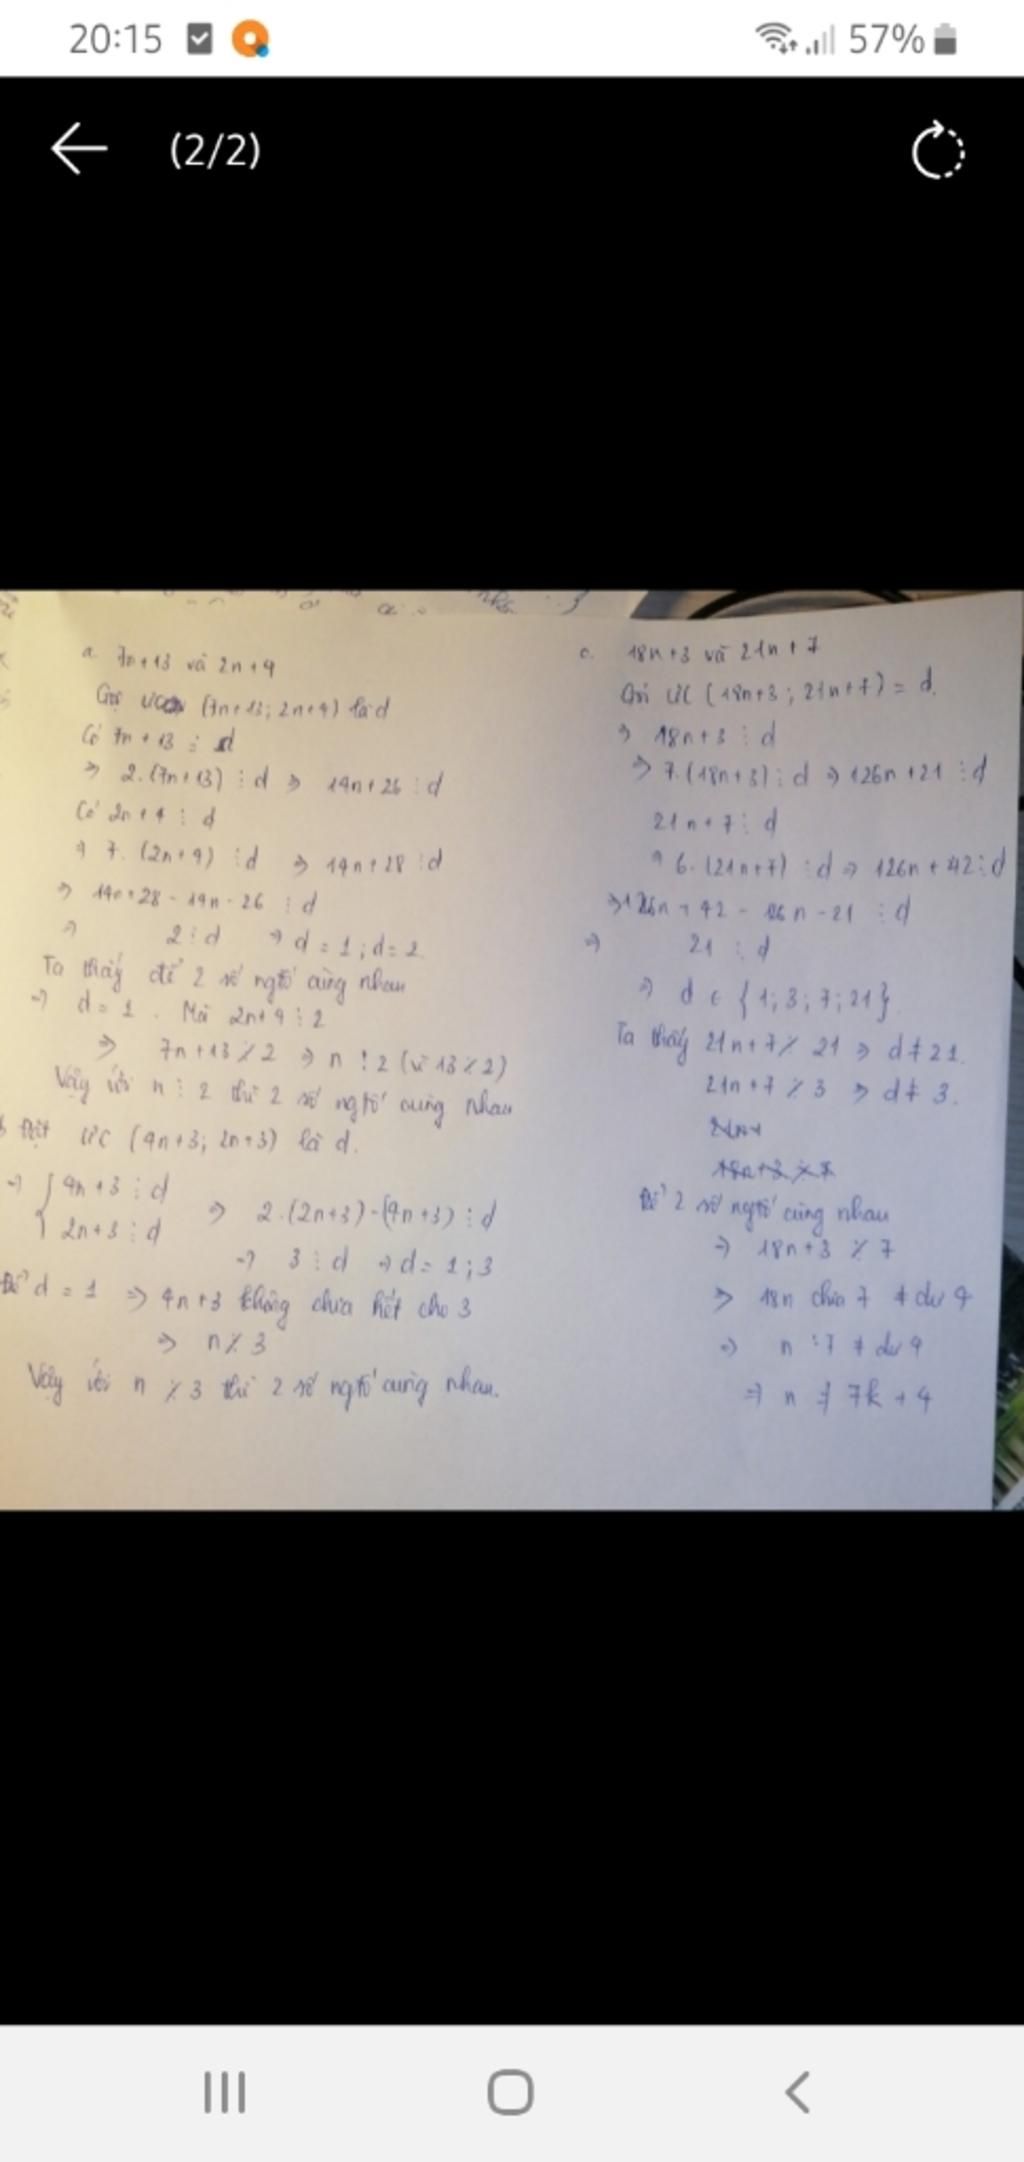 20:15
57%
(2/2)
a. 7n+13 và 2n+4
Gọi ƯC (7n+13; 2n+4) là d
Có 7n+13 ⋮ d
⇒ 2.(7n+13) ⋮ d ⇒ 14n+26 ⋮ d
Có 2n+4 ⋮ d
⇒ 7.(2n+4) ⋮ d ⇒ 14n+28 ⋮ d
⇒ 14n+28-14n-26 ⋮ d
⇒ 2 ⋮ d ⇒ d = 1; d = 2
Ta thấy để 2 số ngtố cùng nhau
⇒ d = 1. Mà 2n+4 ⋮ 2
⇒ 7n+13 ⋮̸ 2 ⇒ n ⋮ 2 (vì 13 ⋮̸ 2)
Vậy với n ⋮ 2 thì 2 số ngtố cùng nhau
Đặt ƯC (4n+3; 2n+3) là d.
⇒ { 4n+3 ⋮ d
2n+3 ⋮ d ⇒ 2.(2n+3)-(4n+3) ⋮ d
⇒ 3 ⋮ d ⇒ d = 1; 3
Để d = 1 ⇒ 4n+3 không chia hết cho 3
⇒ n ⋮̸ 3
Vậy với n ⋮̸ 3 thì 2 số ngtố cùng nhau.
c. 18n+3 và 21n+7
Gọi ƯC (18n+3; 21n+7) = d.
⇒ 18n+3 ⋮ d
⇒ 7.(18n+3) ⋮ d ⇒ 126n+21 ⋮ d
21n+7 ⋮ d
⇒ 6.(21n+7) ⋮ d ⇒ 126n+42 ⋮ d
⇒ 126n+42-126n-21 ⋮ d
⇒ 21 ⋮ d
⇒ d ∈ {1; 3; 7; 21}.
Ta thấy 21n+7 ⋮̸ 21 ⇒ d ≠ 21.
21n+7 ⋮̸ 3 ⇒ d ≠ 3.
Để 2 số ngtố cùng nhau
⇒ 18n+3 ⋮̸ 7
⇒ 18n chia 7 ≠ dư 4
⇒ n : 7 ≠ dư
⇒ n ≠ 7k+4